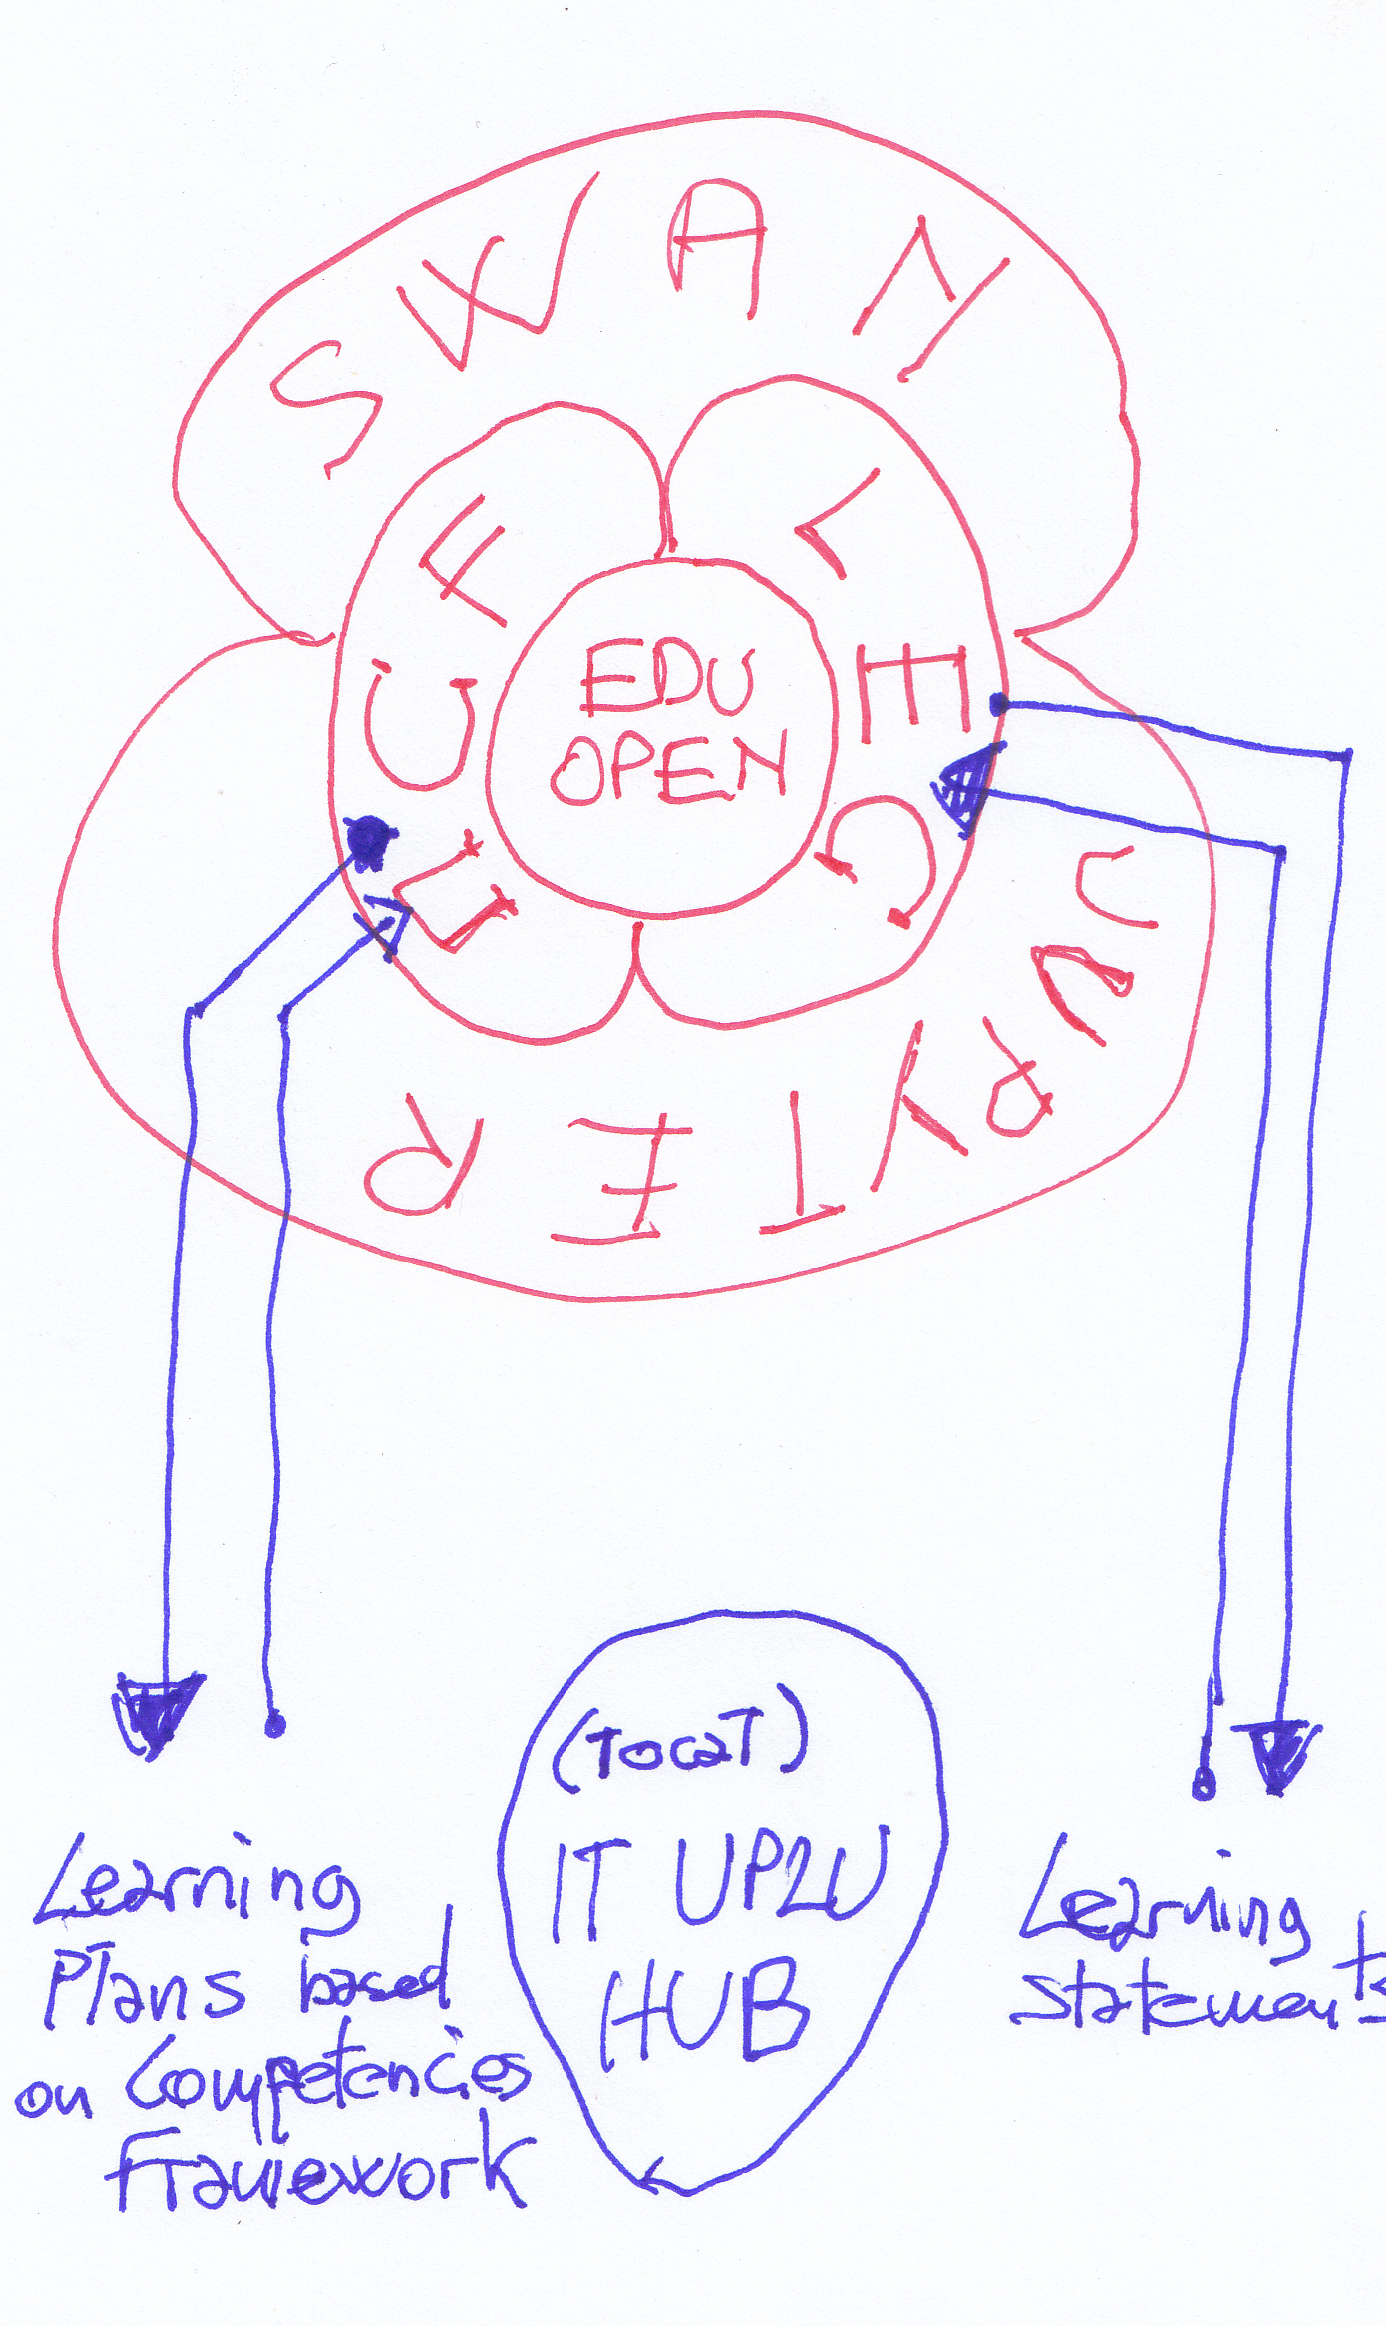 SWAN
JUPYTER
ECF
LEC
EDU
OPEN
Learning
Plans based
on Competencies
Framework
(TOCAT)
IT UP2U
HUB
Learning
statements